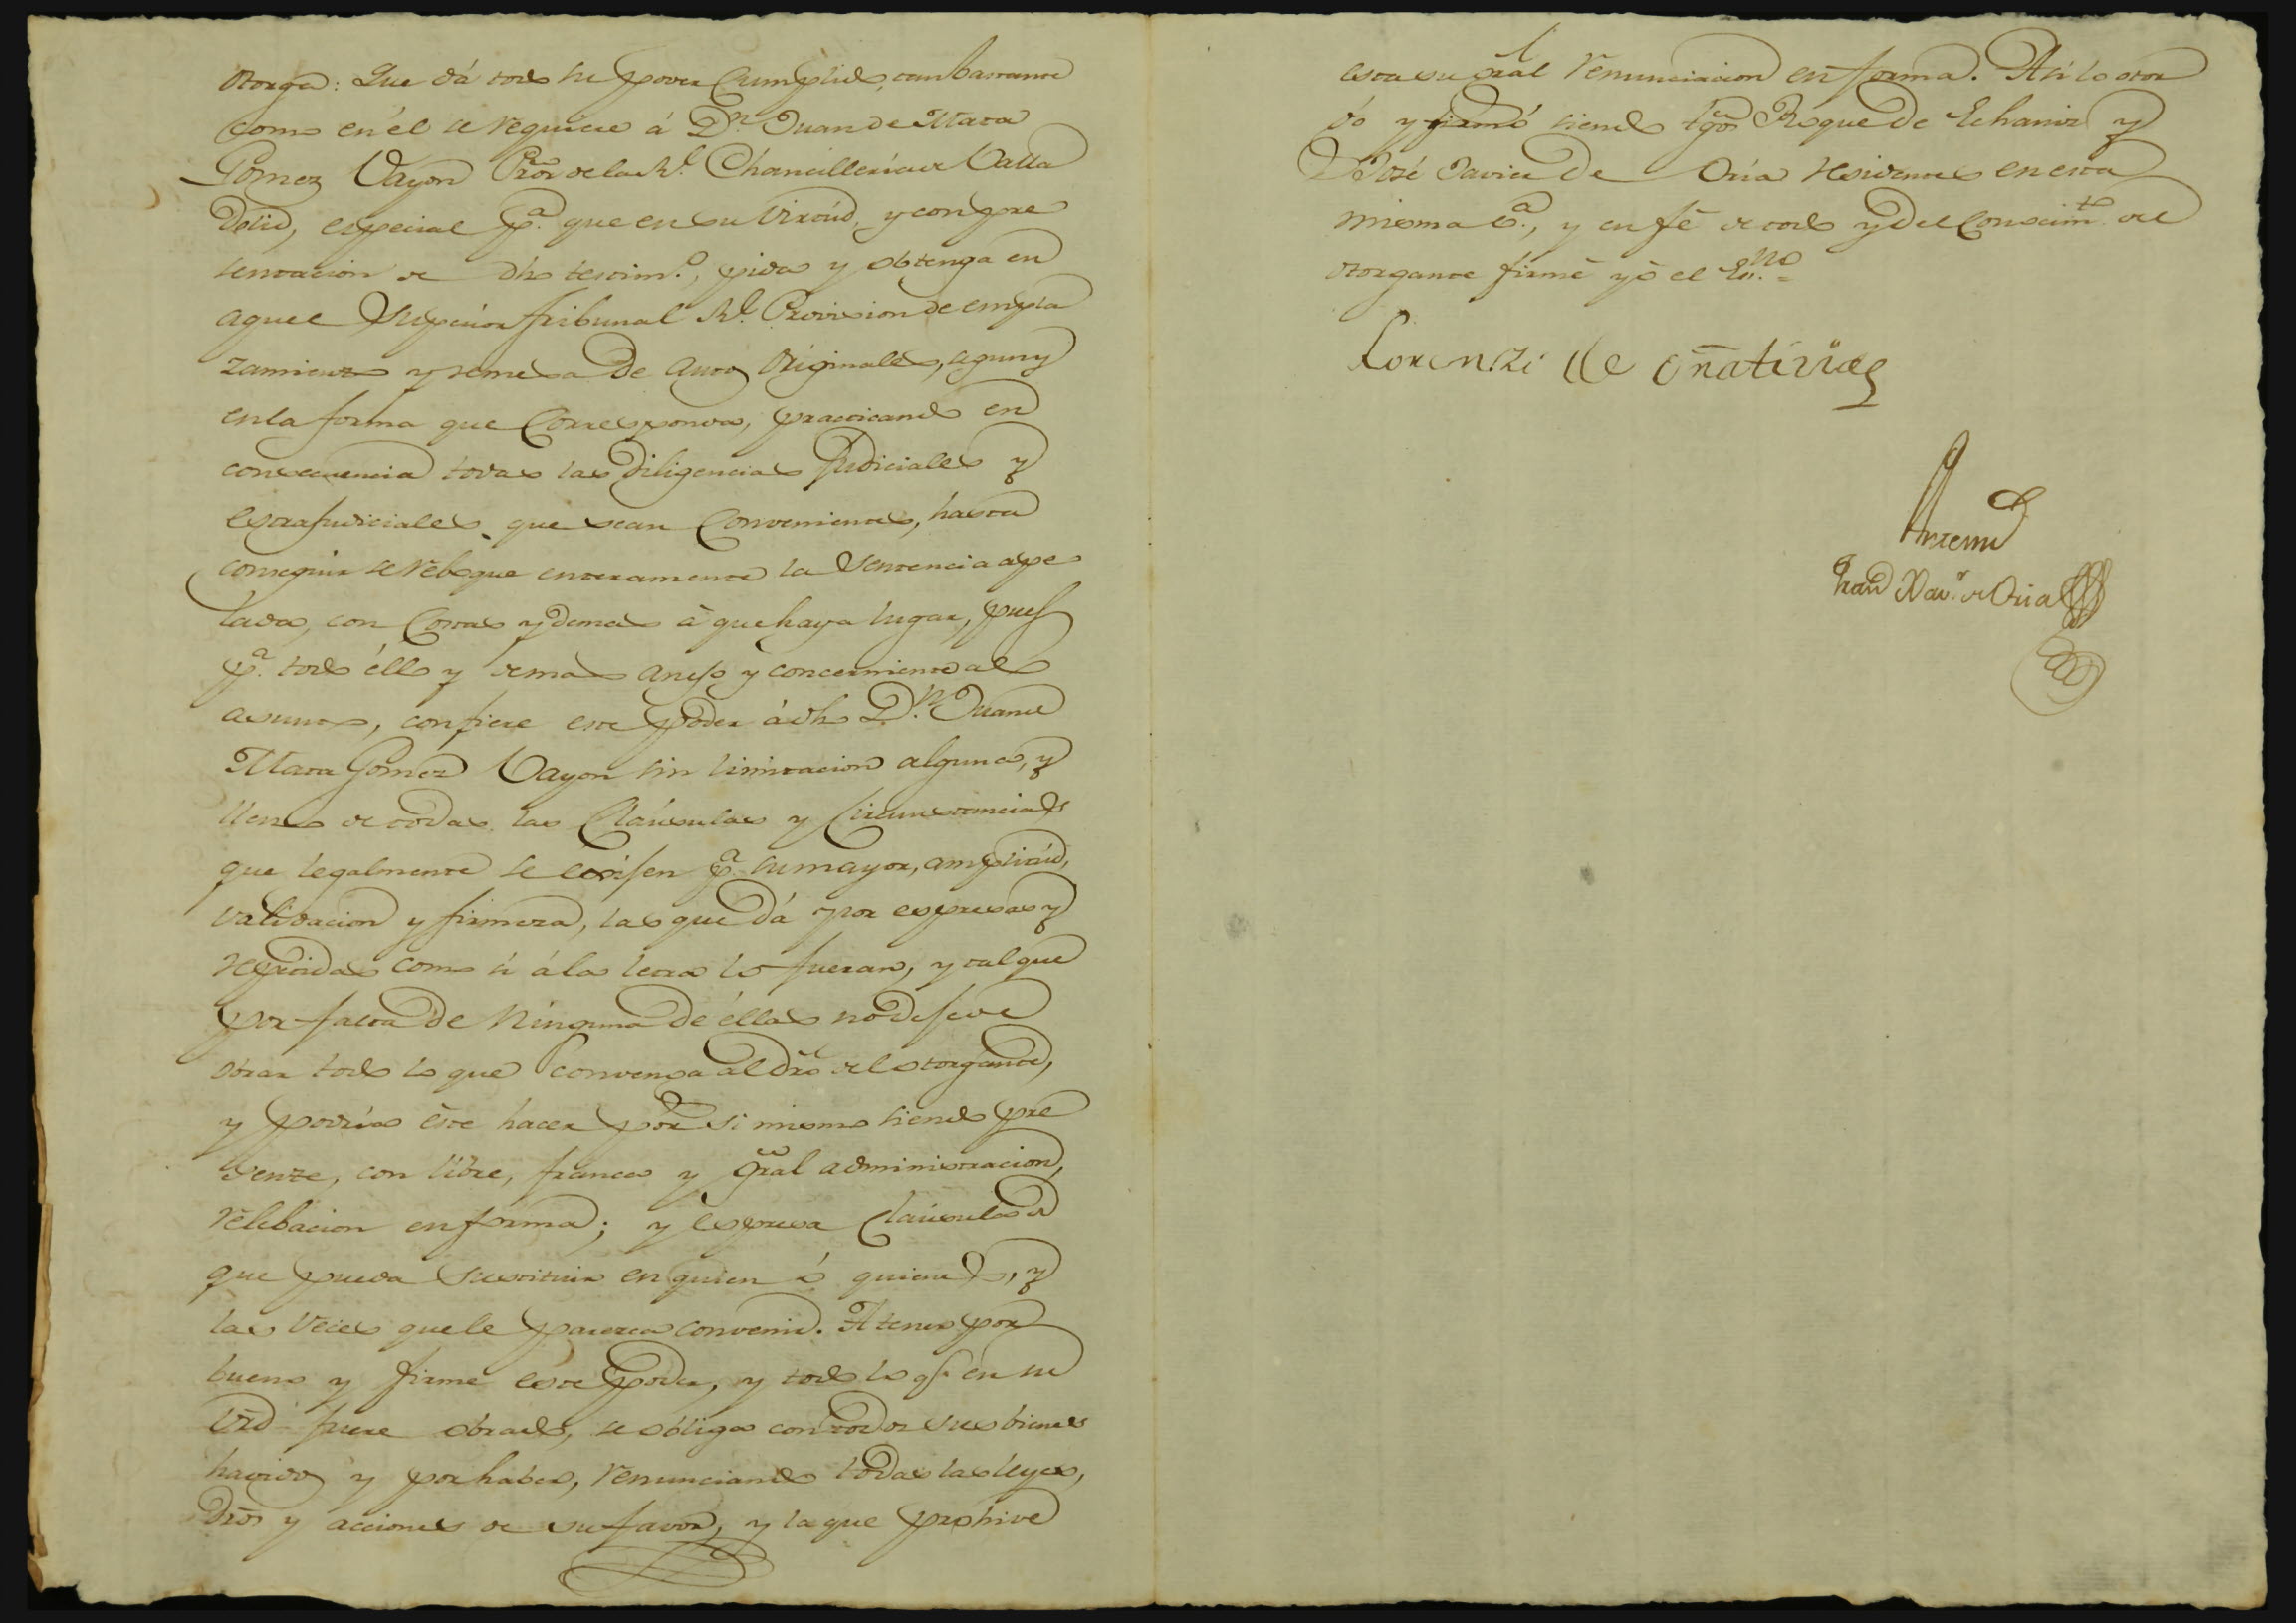 otorga: Que dá todo su poder Cumplido, tan bastante
como en él se requiere á Dn. Juan de Mata
Gomez Vayon Pror. de la Rl. Chancilleria de Valla
dolid, especial pa. que en su virtúd, y con pre
sentacion de dho testimo., pida y obtenga en
aquel Superior Tribunal Rl. Provision de empla
zamiento y remesa de autos Originales, segun y
en la forma que Corresponda, practicando en
consecuencia todas las diligencias Judiciales y
estrajudiciales que sean Convenientes, hasta
conseguir se reboque enteramente la Sentencia ape
lada, con Costas y demas á que haya lugar, pues
pa. todo éllo y demas anejo y concerniente al
asunto, confiere este poder á dho Dn. Juan de
Mata Gomez Vayon sin limitacion alguna, y
lleno de todas las Cláusulas y Circunstancias
que legalmente se exijen pa. su mayor, amplitúd,
validacion y firmeza, las que dá por espresas y
repetidas como si á la letra lo fueran, y tal que
por falta de ninguna de éllas no deje de
obrar todo lo que convenga al dro. del otorgante,
y podria éste hacer por si mismo siendo pre
sente, con libre, franca y gral administracion,
relebacion en forma; y espresa Cláusula de
que pueda sustituir en quien ó quienes, y
las veces que le parezca convenir. A tener por
bueno y firme este poder, y todo lo q. en su
vrd. fuere obrado, se obliga con todos sus bienes
havidos y por haber, renunciando todas las leyes,
dros y acciones de su favor, y la que prohive
esta su gral renunciacion en forma. Asi lo otor
gó y firmó siendo tgos. Roque de Echaniz y
José Javier de Oria residentes en esta
misma va., y en fé de todo y del Conocimto. del
otorgante firmé yó el Esno. =
Lorenzo de Oñativia
Antemi
Fran Xavr. de Oria